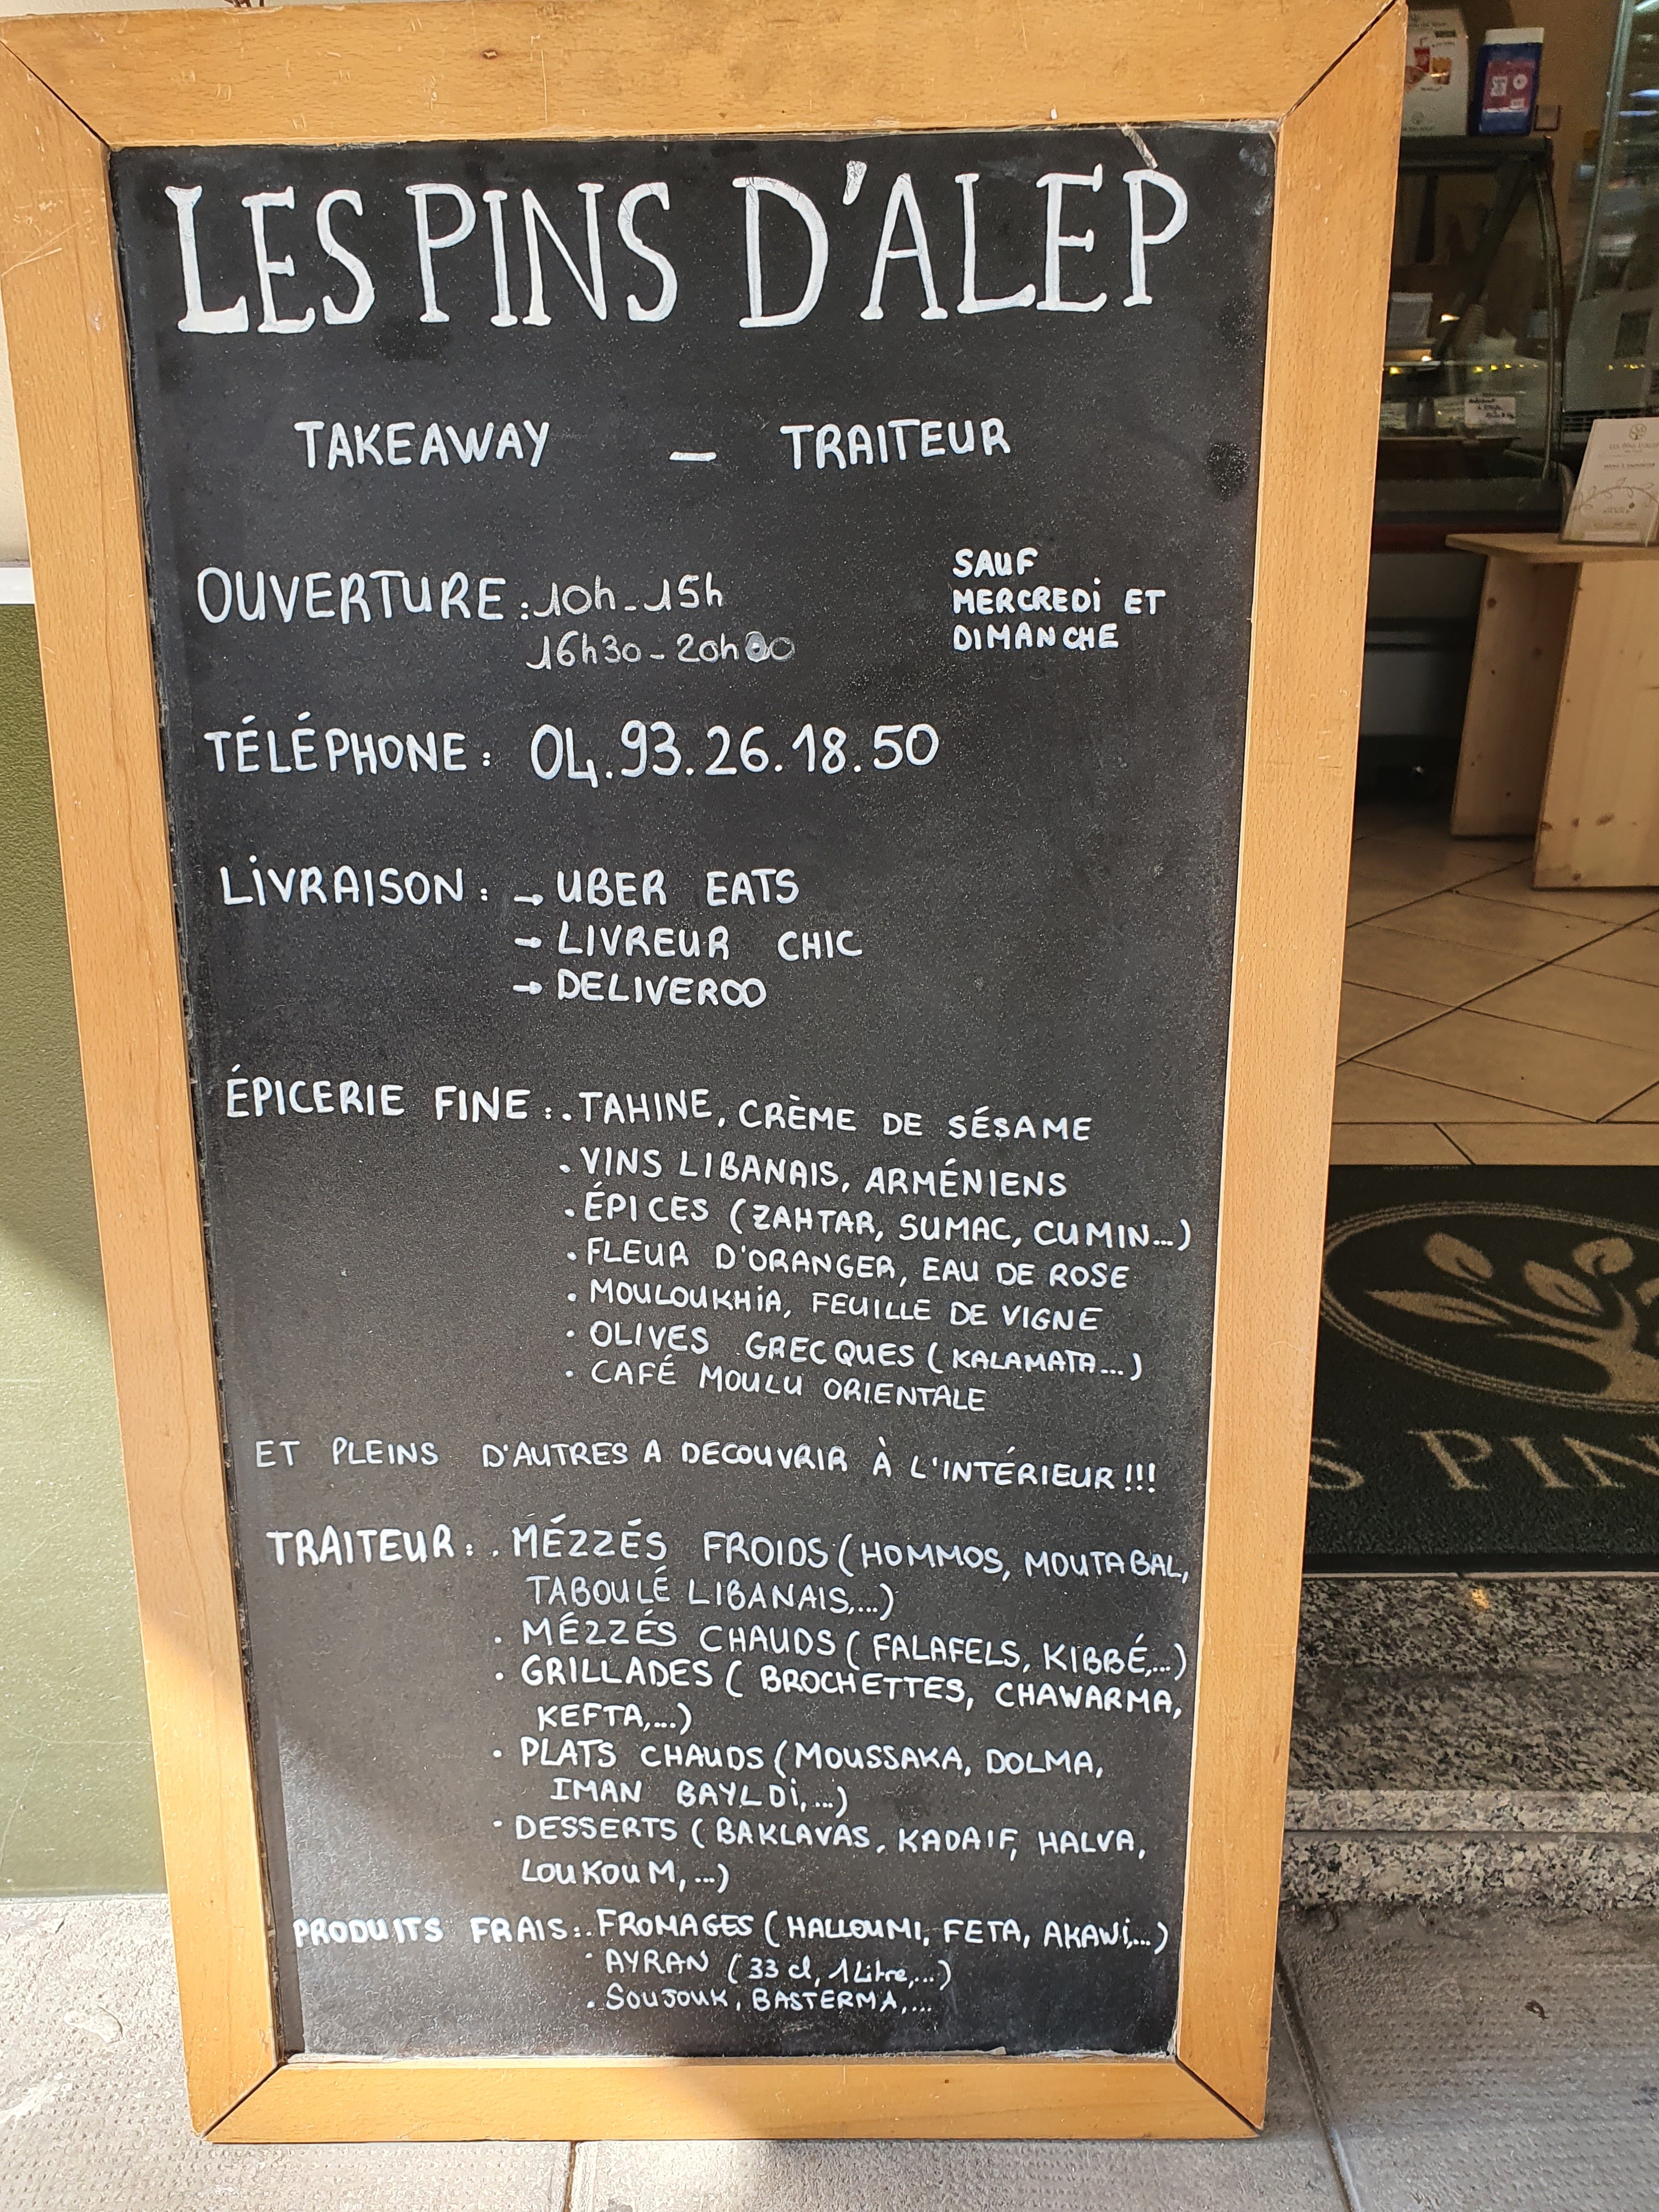 LES PINS D'ALEP
TAKEAWAY — TRAITEUR
OUVERTURE : 10h - 15h
16h30 - 20h00
SAUF
MERCREDI ET
DIMANCHE
TÉLÉPHONE : 04.93.26.18.50
LIVRAISON : → UBER EATS
→ LIVREUR CHIC
→ DELIVEROO
ÉPICERIE FINE : . TAHINE, CRÈME DE SÉSAME
. VINS LIBANAIS, ARMÉNIENS
. ÉPICES (ZAHTAR, SUMAC, CUMIN...)
. FLEUR D'ORANGER, EAU DE ROSE
. MOULOUKHIA, FEUILLE DE VIGNE
. OLIVES GRECQUES (KALAMATA...)
. CAFÉ MOULU ORIENTALE
ET PLEINS D'AUTRES A DECOUVRIR À L'INTÉRIEUR !!!
TRAITEUR : . MÉZZÉS FROIDS (HOMMOS, MOUTABAL,
TABOULÉ LIBANAIS,...)
. MÉZZÉS CHAUDS (FALAFELS, KIBBÉ,...)
. GRILLADES (BROCHETTES, CHAWARMA,
KEFTA,...)
. PLATS CHAUDS (MOUSSAKA, DOLMA,
IMAN BAYLDI,...)
. DESSERTS (BAKLAVAS, KADAIF, HALVA,
LOUKOUM,...)
PRODUITS FRAIS : . FROMAGES (HALLOUMI, FETA, AKAWI,...)
. AYRAN (33 cl, 1 Litre,...)
. SOUJOUK, BASTERMA,...
LES PINS D'ALEP
S PIN